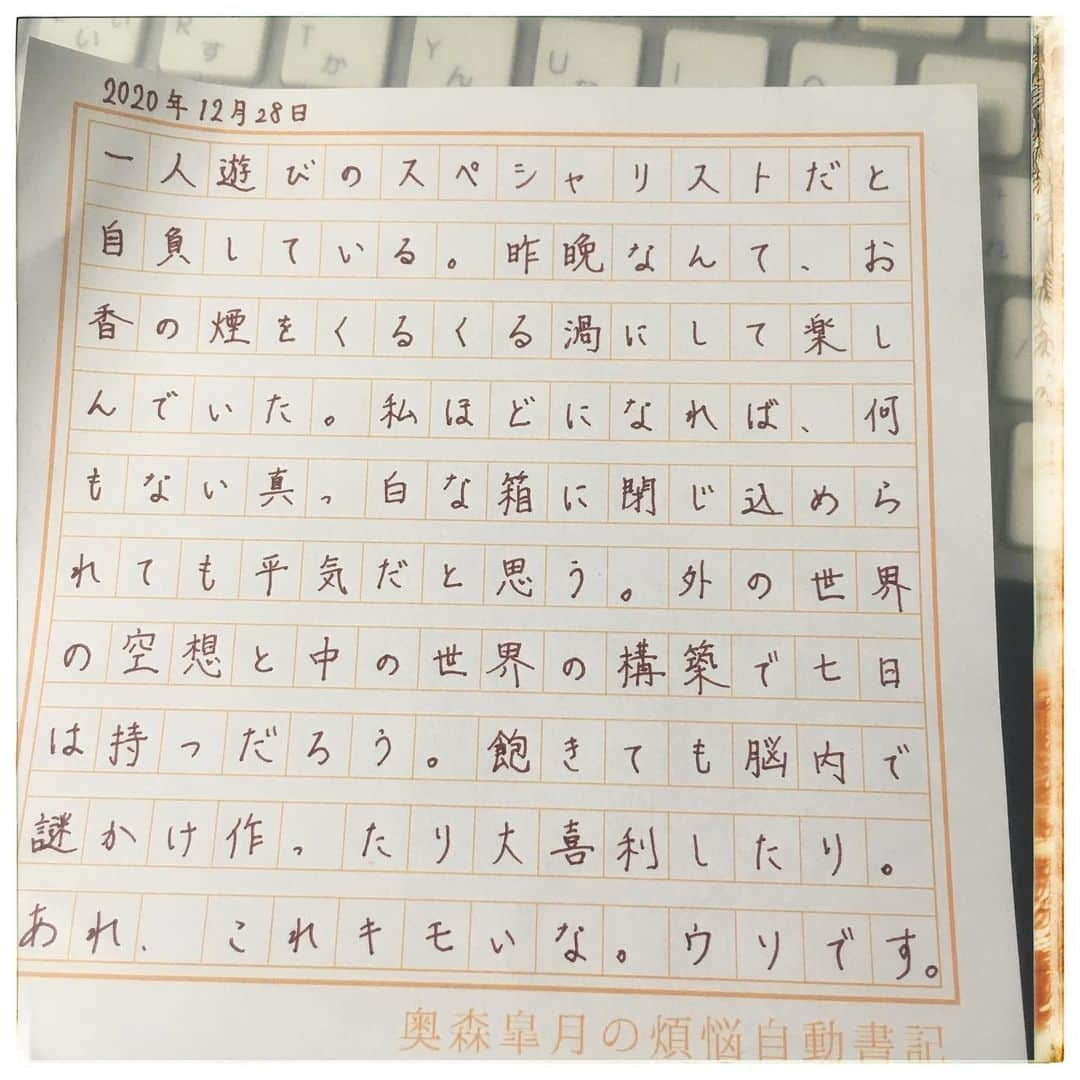 い
R
す
T
か
Y
ん
U
2020年12月28日
一人遊びのスペシャリストだと
自負している。昨晩なんて、お
香の煙をくるくる渦にして楽し
んでいた。私ほどになれば、何
もない真っ白な箱に閉じ込めら
れても平気だと思う。外の世界
の空想と中の世界の構築で七日
は持つだろう。飽きても脳内で
謎かけ作ったり大喜利したり。
あれ、これキモいな。ウソです。
奥森皐月の煩悩自動書記